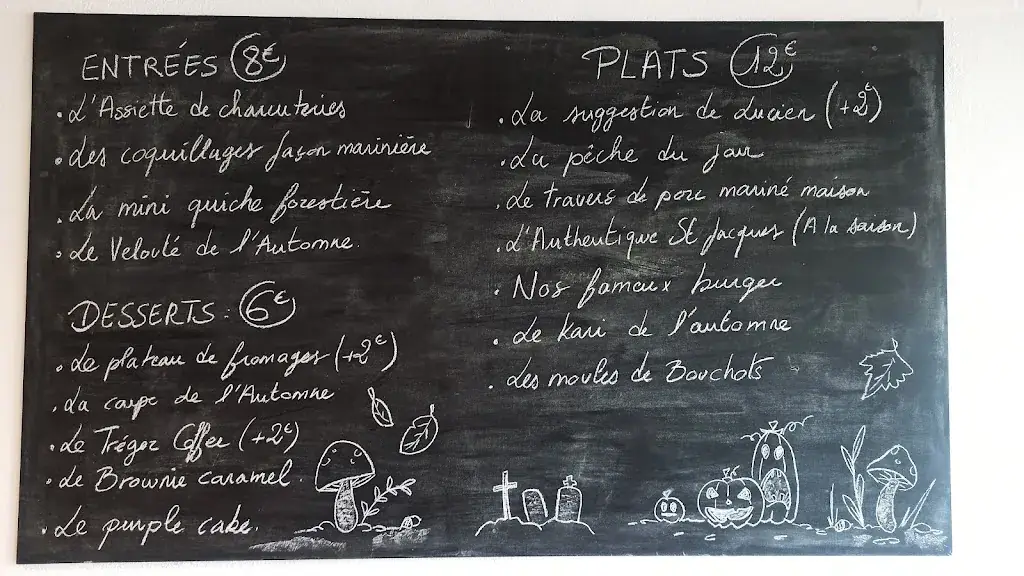 ENTRÉES 8€
• L'Assiette de charcuteries
• Les coquillages façon marinière
• La mini quiche forestière
• Le Velouté de l'Automne.
DESSERTS : 6€
• Le plateau de fromages (+2€)
• La coupe de l'Automne
• Le Trégor Coffee (+2€)
• Le Brownie caramel.
• Le purple cake.
PLATS 12€
• La suggestion de Lucien (+2€)
• La pêche du jour
• Le travers de porc mariné maison
• L'Authentique St Jacques (A la saison)
• Nos fameux burger
• Le kari de l'automne
• Les moules de Bouchots